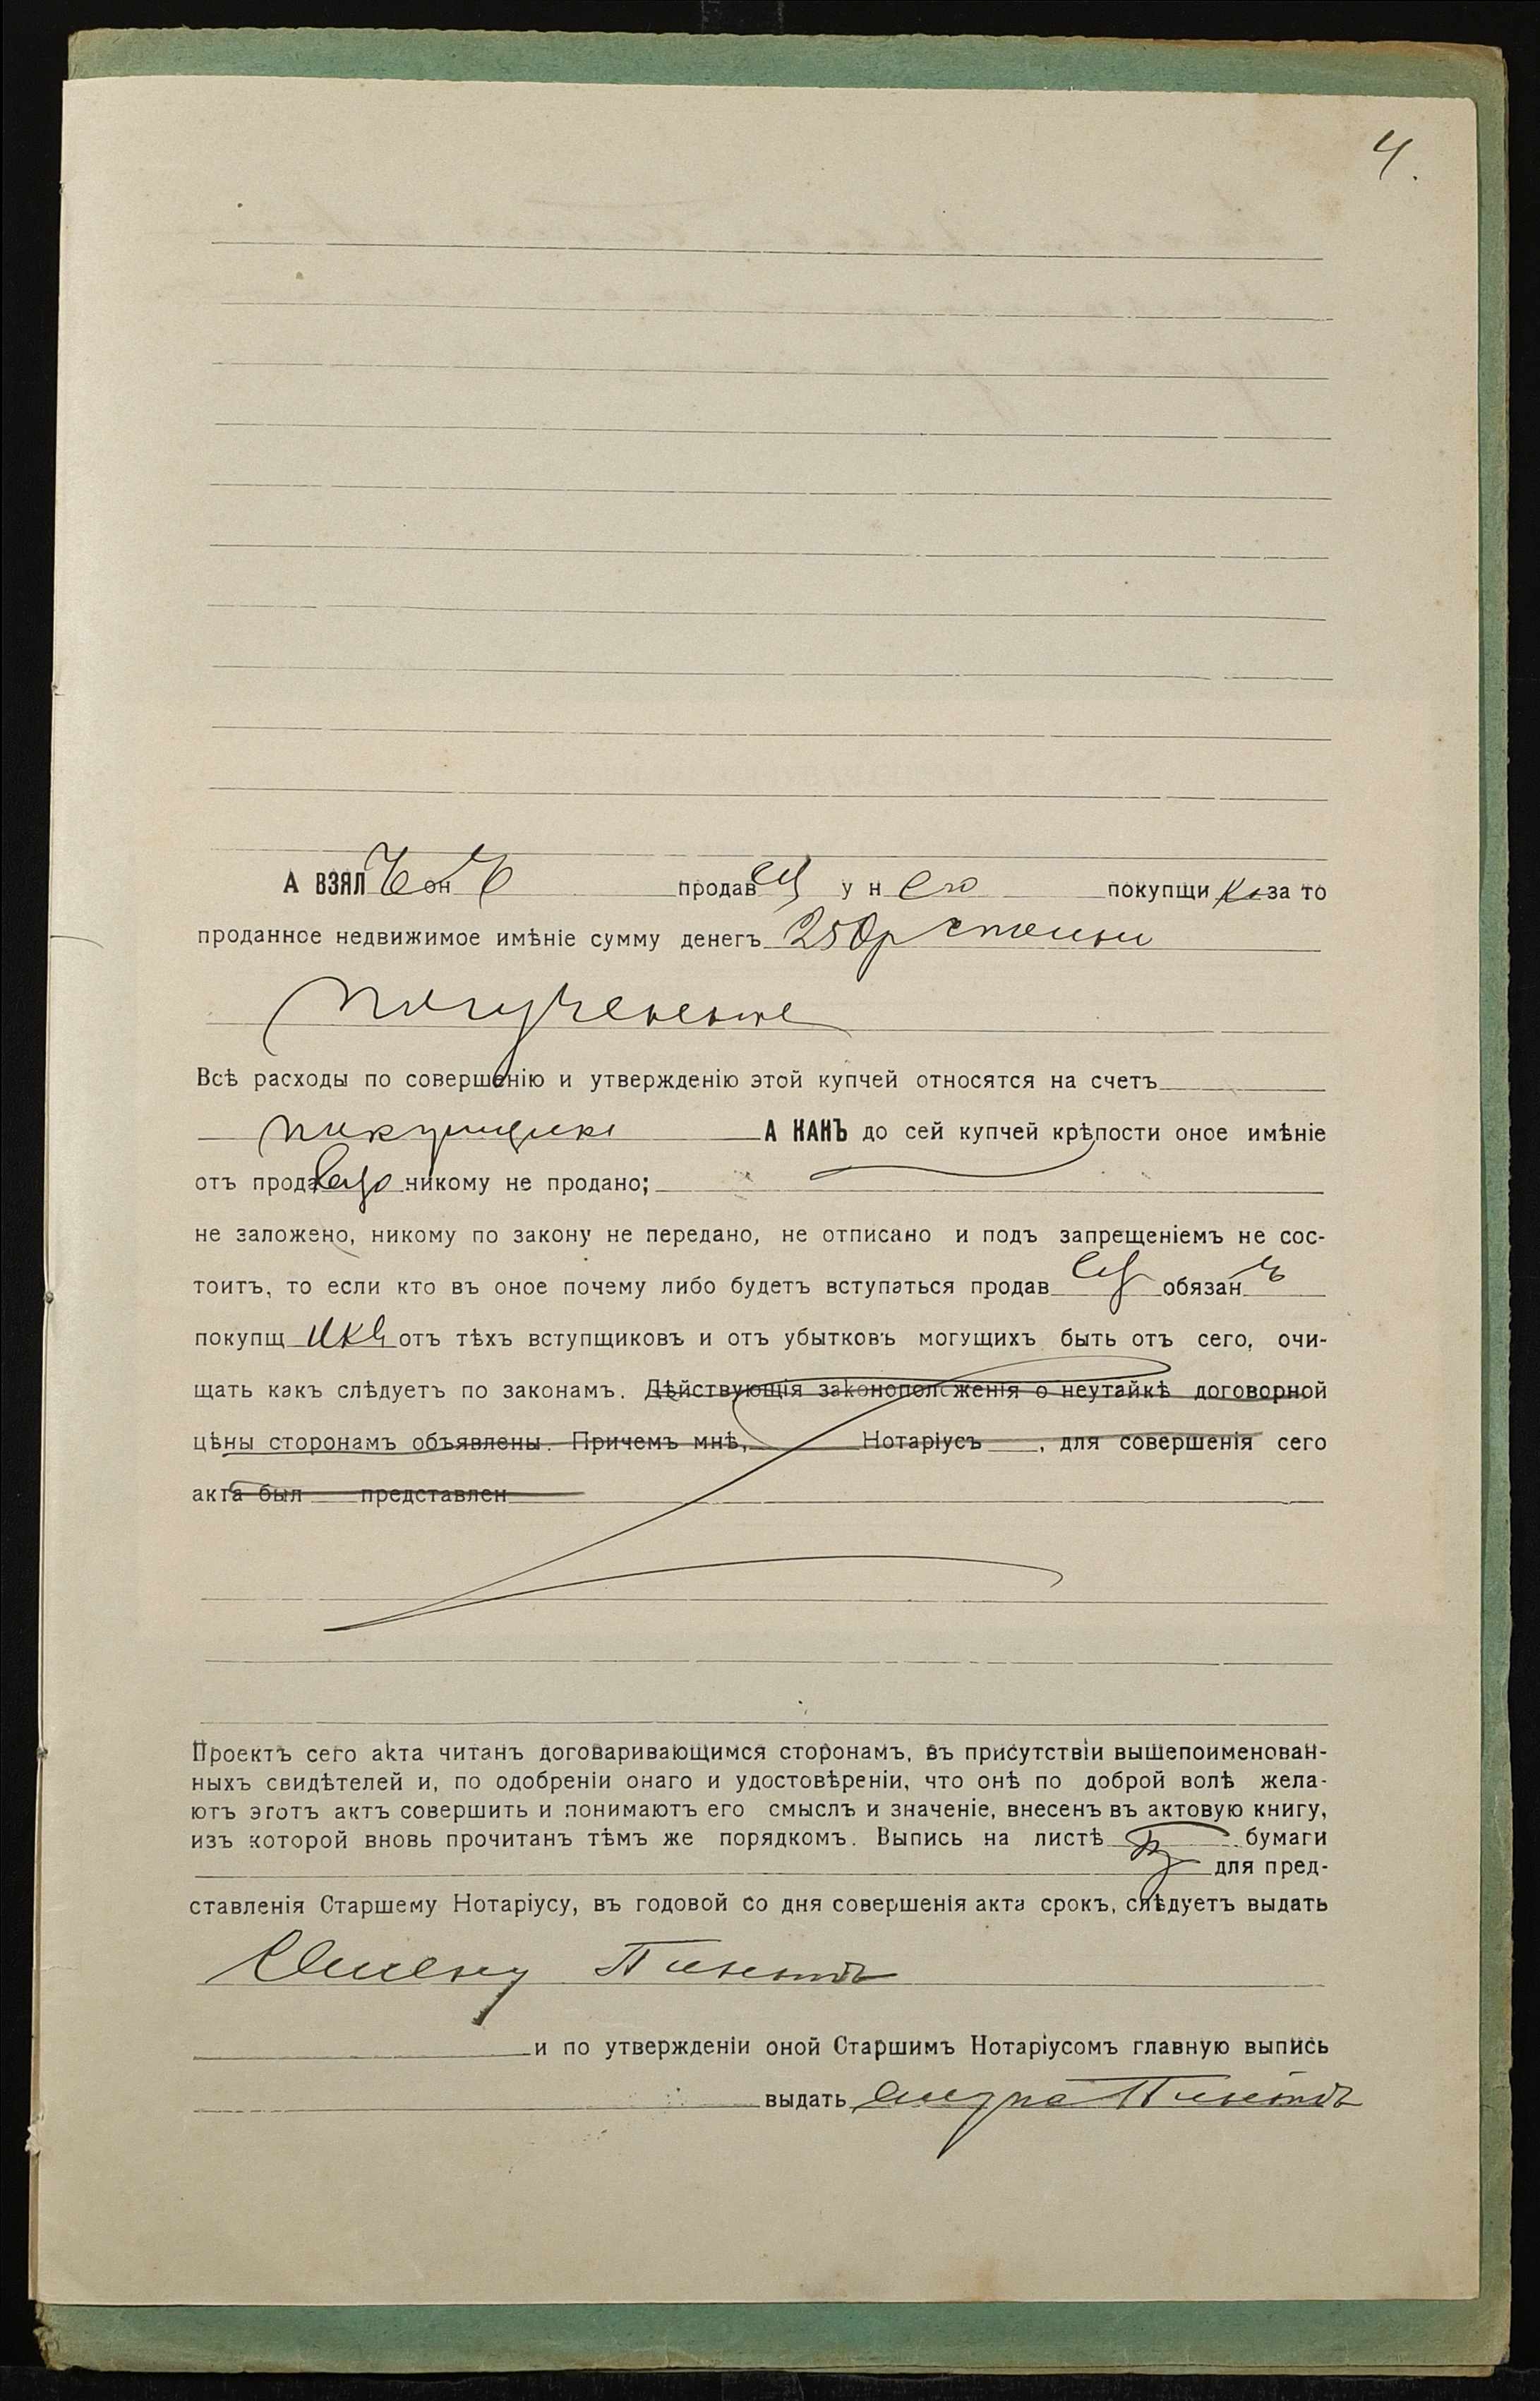 4.
А ВЗЯЛЪ онъ продавецъ у него покупщика за то
проданное недвижимое имѣніе сумму денегъ 250 р
полученные
Всѣ расходы по совершенію и утвержденію этой купчей относятся на счетъ
покупщика А КАКЪ до сей купчей крѣпости оное имѣніе
отъ продавца никому не продано;
не заложено, никому по закону не передано, не отписано и подъ запрещеніемъ не сос-
тоитъ, то если кто въ оное почему либо будетъ вступаться продавецъ обязанъ
покупщика отъ тѣхъ вступщиковъ и отъ убытковъ могущихъ быть отъ сего, очи-
щать какъ слѣдуетъ по законамъ. Дѣйствующія законоположенія о неутайкѣ договорной
цѣны сторонамъ объявлены. Причемъ мнѣ, Нотаріусъ , для совершенія сего
акта был представлен
Проектъ сего акта читанъ договаривающимся сторонамъ, въ присутствіи вышепоименован-
ныхъ свидѣтелей и, по одобреніи онаго и удостовѣреніи, что онѣ по доброй волѣ жела-
ютъ этотъ актъ совершить и понимаютъ его смыслъ и значеніе, внесенъ въ актовую книгу,
изъ которой вновь прочитанъ тѣмъ же порядкомъ. Выпись на листѣ бумаги
для пред-
ставленія Старшему Нотаріусу, въ годовой со дня совершенія акта срокъ, слѣдуетъ выдать
и по утвержденіи оной Старшимъ Нотаріусомъ главную выпись
выдать